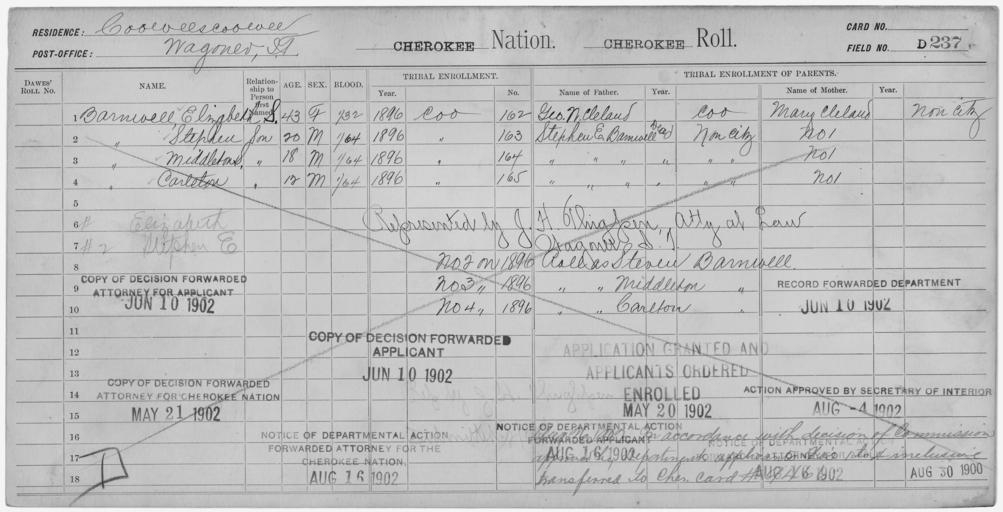 RESIDENCE: Coowееscoowee
POST-OFFICE: Wagoner, I.T.
CHEROKEE Nation. CHEROKEE Roll.
CARD NO.
FIELD NO. D 237
Dawes' Roll No. NAME. Relationship to Person first Named AGE. SEX. BLOOD. TRIBAL ENROLLMENT. Year. No. TRIBAL ENROLLMENT OF PARENTS. Name of Father. Year. Name of Mother. Year.
1 Barnwell Elizabeth S. 43 F 1/32 1896 Coo 162 Geo. N. Cleland Coo Mary Cleland Non City
2 " Stephen Son 20 M 1/64 1896 " 163 Stephen E. Barnwell Non City No 1
3 " Middleton " 18 M 1/64 1896 " 164 " " " " " No 1
4 " Carlston " 12 M 1/64 1896 " 165 " " " " " No 1
5
6 # Elizabeth Represented by J. H. Atty at Law
7 # 2 Stephen E Wagoner I.T.
8 No 2 on 1896 Roll as Steven Barnwell.
9 No 3 " 1896 " " Middleton "
10 No 4 " 1896 " " Carlton "
COPY OF DECISION FORWARDED
ATTORNEY FOR APPLICANT
JUN 10 1902
RECORD FORWARDED DEPARTMENT
JUN 10 1902
11
12
13
14
15
16
17
18
COPY OF DECISION FORWARDED
APPLICANT
JUN 10 1902
APPLICATION GRANTED AND
APPLICANTS ORDERED
ENROLLED
MAY 20 1902
COPY OF DECISION FORWARDED
ATTORNEY FOR CHEROKEE NATION
MAY 21 1902
ACTION APPROVED BY SECRETARY OF INTERIOR
AUG -4 1902
NOTICE OF DEPARTMENTAL ACTION
FORWARDED ATTORNEY FOR THE
CHEROKEE NATION,
AUG 16 1902
NOTICE OF DEPARTMENTAL ACTION
FORWARDED APPLICANT
AUG 16 1902
NOTICE OF DEPARTMENTAL
AUG 16 1902
in accordance with decision of Commission
inclusive
transferred to Cher. card
AUG 30 1900
D